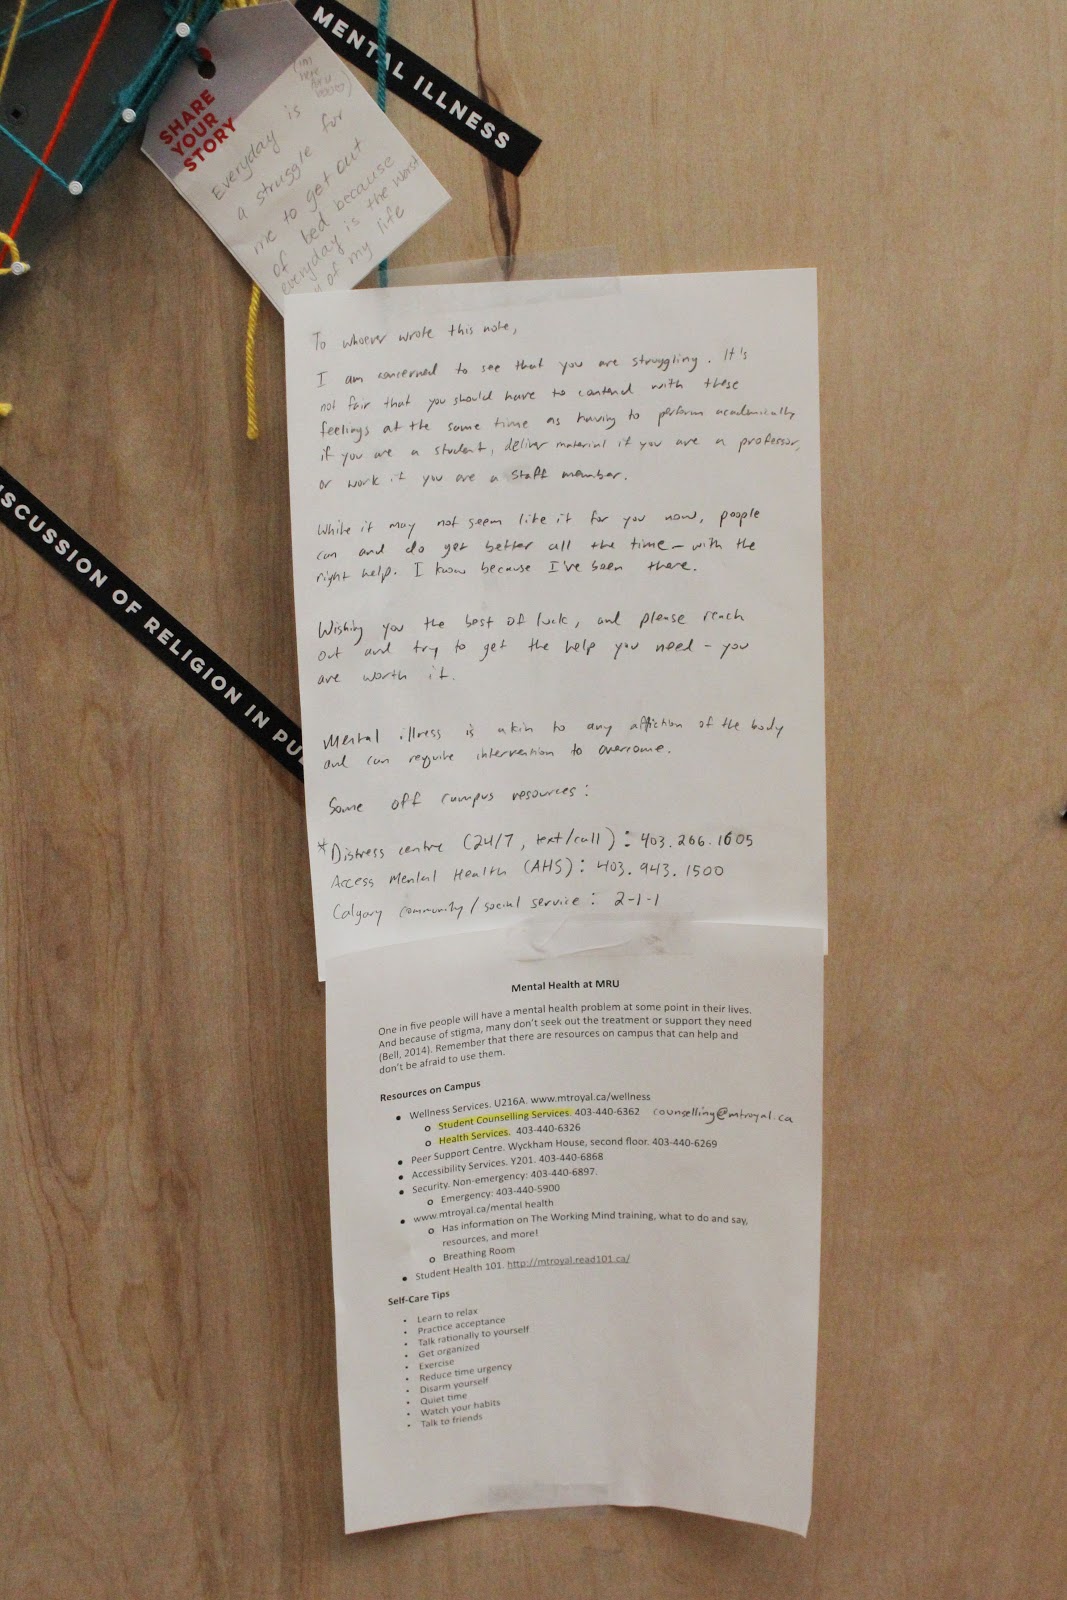 MENTAL ILLNESS
SHARE
YOUR
STORY
(I'm
here
Everyday is
a struggle for
me to get out
of bed because
everyday is the worst
of my life
DISCUSSION OF RELIGION IN PU
To whoever wrote this note,
I am concerned to see that you are struggling. It's
not fair that you should have to contend with these
feelings at the same time as having to perform academically
if you are a student, deliver material if you are a professor,
or work if you are a staff member.
While it may not seem like it for you now, people
can and do get better all the time - with the
right help. I know because I've been there.
Wishing you the best of luck, and please reach
out and try to get the help you need - you
are worth it.
Mental illness is akin to any affliction of the body
and can require intervention to overcome.
Some off campus resources:
*Distress centre (24/7, text/call): 403.266.1605
Access Mental Health (AHS): 403.943.1500
Calgary community/social service: 2-1-1
Mental Health at MRU
One in five people will have a mental health problem at some point in their lives.
And because of stigma, many don't seek out the treatment or support they need
(Bell, 2014). Remember that there are resources on campus that can help and
don't be afraid to use them.
Resources on Campus
• Wellness Services. U216A. www.mtroyal.ca/wellness
o Student Counselling Services. 403-440-6362 counselling@mtroyal.ca
o Health Services. 403-440-6326
• Peer Support Centre. Wyckham House, second floor. 403-440-6269
• Accessibility Services. Y201. 403-440-6868
• Security. Non-emergency: 403-440-6897.
o Emergency: 403-440-5900
• www.mtroyal.ca/mental health
o Has information on The Working Mind training, what to do and say,
resources, and more!
o Breathing Room
• Student Health 101. http://mtroyal.read101.ca/
Self-Care Tips
• Learn to relax
• Practice acceptance
• Talk rationally to yourself
• Get organized
• Exercise
• Reduce time urgency
• Disarm yourself
• Quiet time
• Watch your habits
• Talk to friends